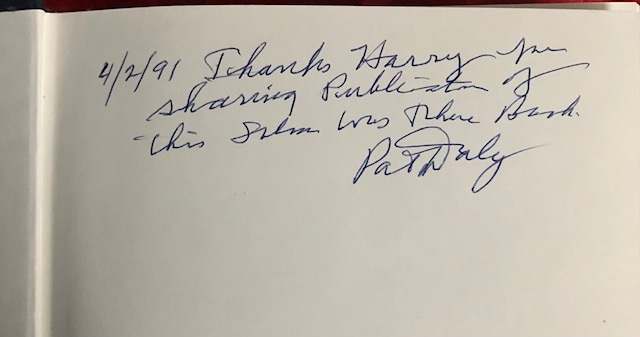 4/2/91 Thanks Harry for
sharing Publication of
this was there Book.
Pat Daly